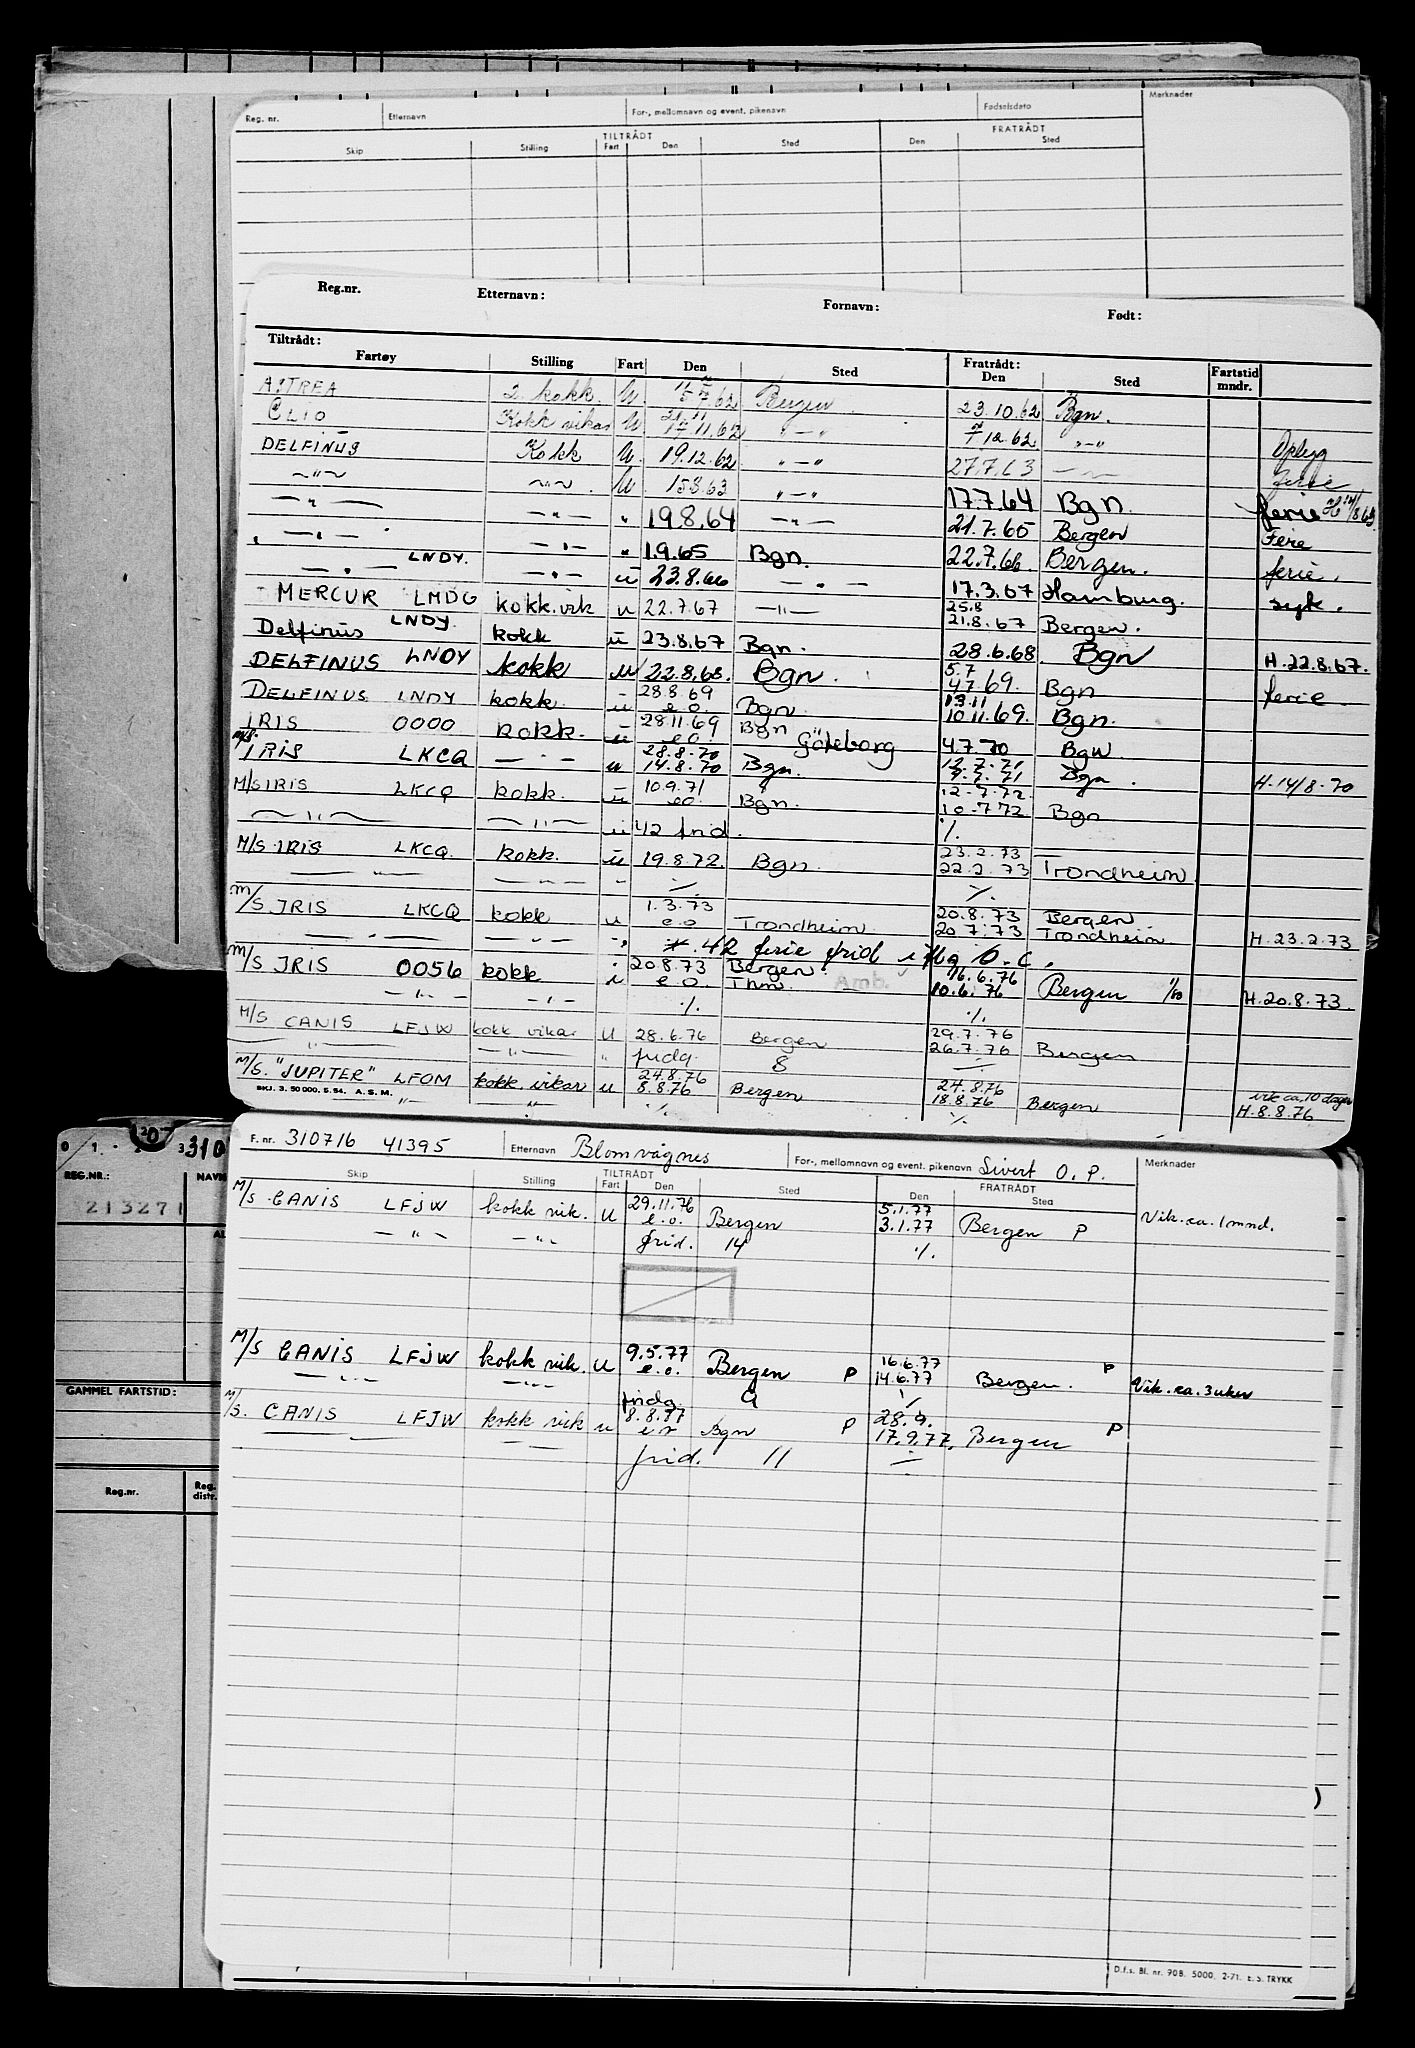 Reg. nr. Etternavn For-, mellomnavn og event. pikenavn Fødselsdato Merknader
TILTRÅDT FRATRÅDT
Skip Stilling Fart Den Sted Den Sted
Reg.nr. Etternavn: Fornavn: Født:
Tiltrådt: Fratrådt: Fartstid
Fartøy Stilling Fart Den Sted Den Sted mndr.
ASTREA 2. kokk. U. 7.62 Bergen 23.10.62 Bgn.
CLIO Kokk vikar U 11.62 〃 12.62 〃 Oplegg
DELFINUS Kokk U. 19.12.62 〃 27.7.63 〃 ferie
〃 〃 U. 15.8.63 〃 17.7.64 Bgn. ferie
〃 〃 〃 19.8.64 〃 21.7.65 Bergen Ferie
〃 〃 〃 1.9.65 Bgn. 22.7.66 Bergen. ferie.
〃 LNDY. 〃 u 23.8.66 〃 17.3.67 Hamburg. syk.
MERCUR LMDG kokk.vik u 22.7.67 〃 25.8
21.8.67 Bergen.
Delfinus LNDY. kokk u 23.8.67 Bgn. 28.6.68. Bgn H.22.8.67.
DELFINUS LNDY kokk u 22.8.68. Bgn. 5.7
4.7.69. Bgn ferie
DELFINUS LNDY kokk. u 28.8.69
e.o. Bgn. 13.11
10.11.69. Bgn.
IRIS 0000 kokk. u 28.11.69 Bgn
e.o. Göteborg 4.7.70 Bgn
M/S. IRIS LKCQ 〃 u 28.8.70
14.8.70 Bgn. 12.7.71
7.7.71 Bgn. H.14/8-70
M/S IRIS LKCQ kokk. u 10.9.71
e.o. Bgn. 12-7.72.
10-7.72 Bgn
〃 〃 u 42 frid. ./.
M/S. IRIS LKCQ. kokk. u 19.8.72. Bgn. 23.2.73
22.2.73 Trondheim
〃 〃 〃 ./. ./.
M/S. IRIS LKCQ kokk u 1.3.73
e.o Trondheim 20.8.73 Bergen
20.7.73 Trondheim H.23.2.73
〃 〃 〃 42 ferie frid
M/S IRIS 0056 kokk i 20.8.73 Bergen.
e.o. Thm. Amb. 16.6.76
10.6.76 Bergen H.20.8.73
〃 〃 ./. ./.
M/S CANIS LFJW kokk vikar U 28.6.76 Bergen 29.7.76
26.7.76 Bergen
〃 〃 〃 fridg. 8 ./.
M/S. "JUPITER" LFOM kokk. vikar u 24.8.76
8.8.76 Bergen 24.8.76
18.8.76 Bergen vik ca. 10 dager
H.8.8.76
BKJ. 3. 50 000. 5. 54. A. S. M. 〃 〃 ./. ./.
0 1 20 3 310
REG.NR.: NAVN
213271
GAMMEL FARTSTID:
Reg.nr. Reg. distr.
F. nr. 310716 41395 Etternavn Blomvågnes For-, mellomnavn og event. pikenavn Sivert O. P. Merknader
TILTRÅDT FRATRÅDT
Skip Stilling Fart Den Sted Den Sted
M/S CANIS LFJW kokk vik. U 29.11.76
e.o. Bergen 5.1.77
3.1.77 Bergen P Vik. ca. 1 mnd.
〃 〃 frid. 14 ./.
M/S CANIS LFJW kokk vik. U 9.5.77
e.o. Bergen P 16.6.77
14.6.77 Bergen. P Vik. ca. 3 uker
〃 〃 fridg. 9 ./.
M/S. CANIS LFJW kokk vik u 8.8.77
e.o Bgn P 28.9.
17.9.77. Bergen P
〃 〃 frid. 11 ./.
D.f.s. Bl. nr. 90B. 5000. 2-71. E. S. TRYKK